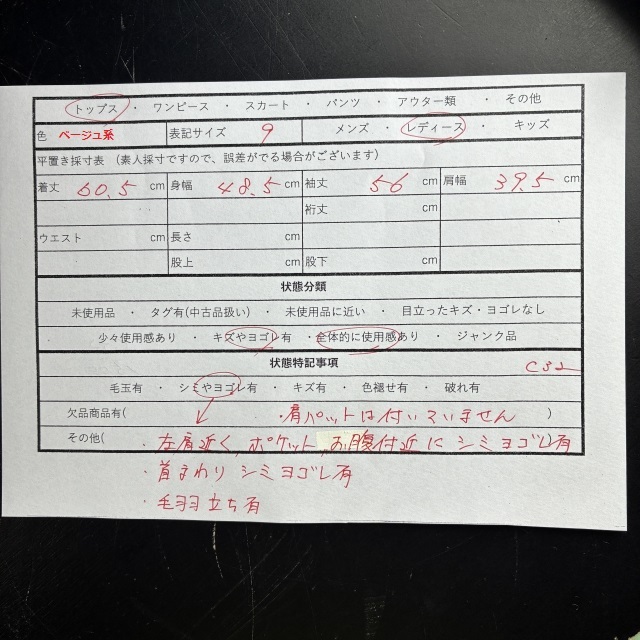 トップス ・ ワンピース ・ スカート ・ パンツ ・ アウター類 ・ その他
色 ベージュ系 表記サイズ 9 メンズ ・ レディース ・ キッズ
平置き採寸表 (素人採寸ですので、誤差がでる場合がございます)
着丈 60.5 cm 身幅 48.5 cm 袖丈 56 cm 肩幅 39.5 cm
裄丈 cm
ウエスト cm 長さ cm
股上 cm 股下 cm
状態分類
未使用品 ・ タグ有(中古品扱い) ・ 未使用品に近い ・ 目立ったキズ・ヨゴレなし
少々使用感あり ・ キズやヨゴレ有 ・全体的に使用感あり ・ ジャンク品
状態特記事項 C32
毛玉有 ・ シミやヨゴレ有 ・ キズ有 ・ 色褪せ有 ・ 破れ有
欠品商品有( ・肩パットは付いていません )
その他( ・左肩近く、ポケット、お腹付近にシミヨゴレ有 )
・首まわりシミヨゴレ有
・毛羽立ち有